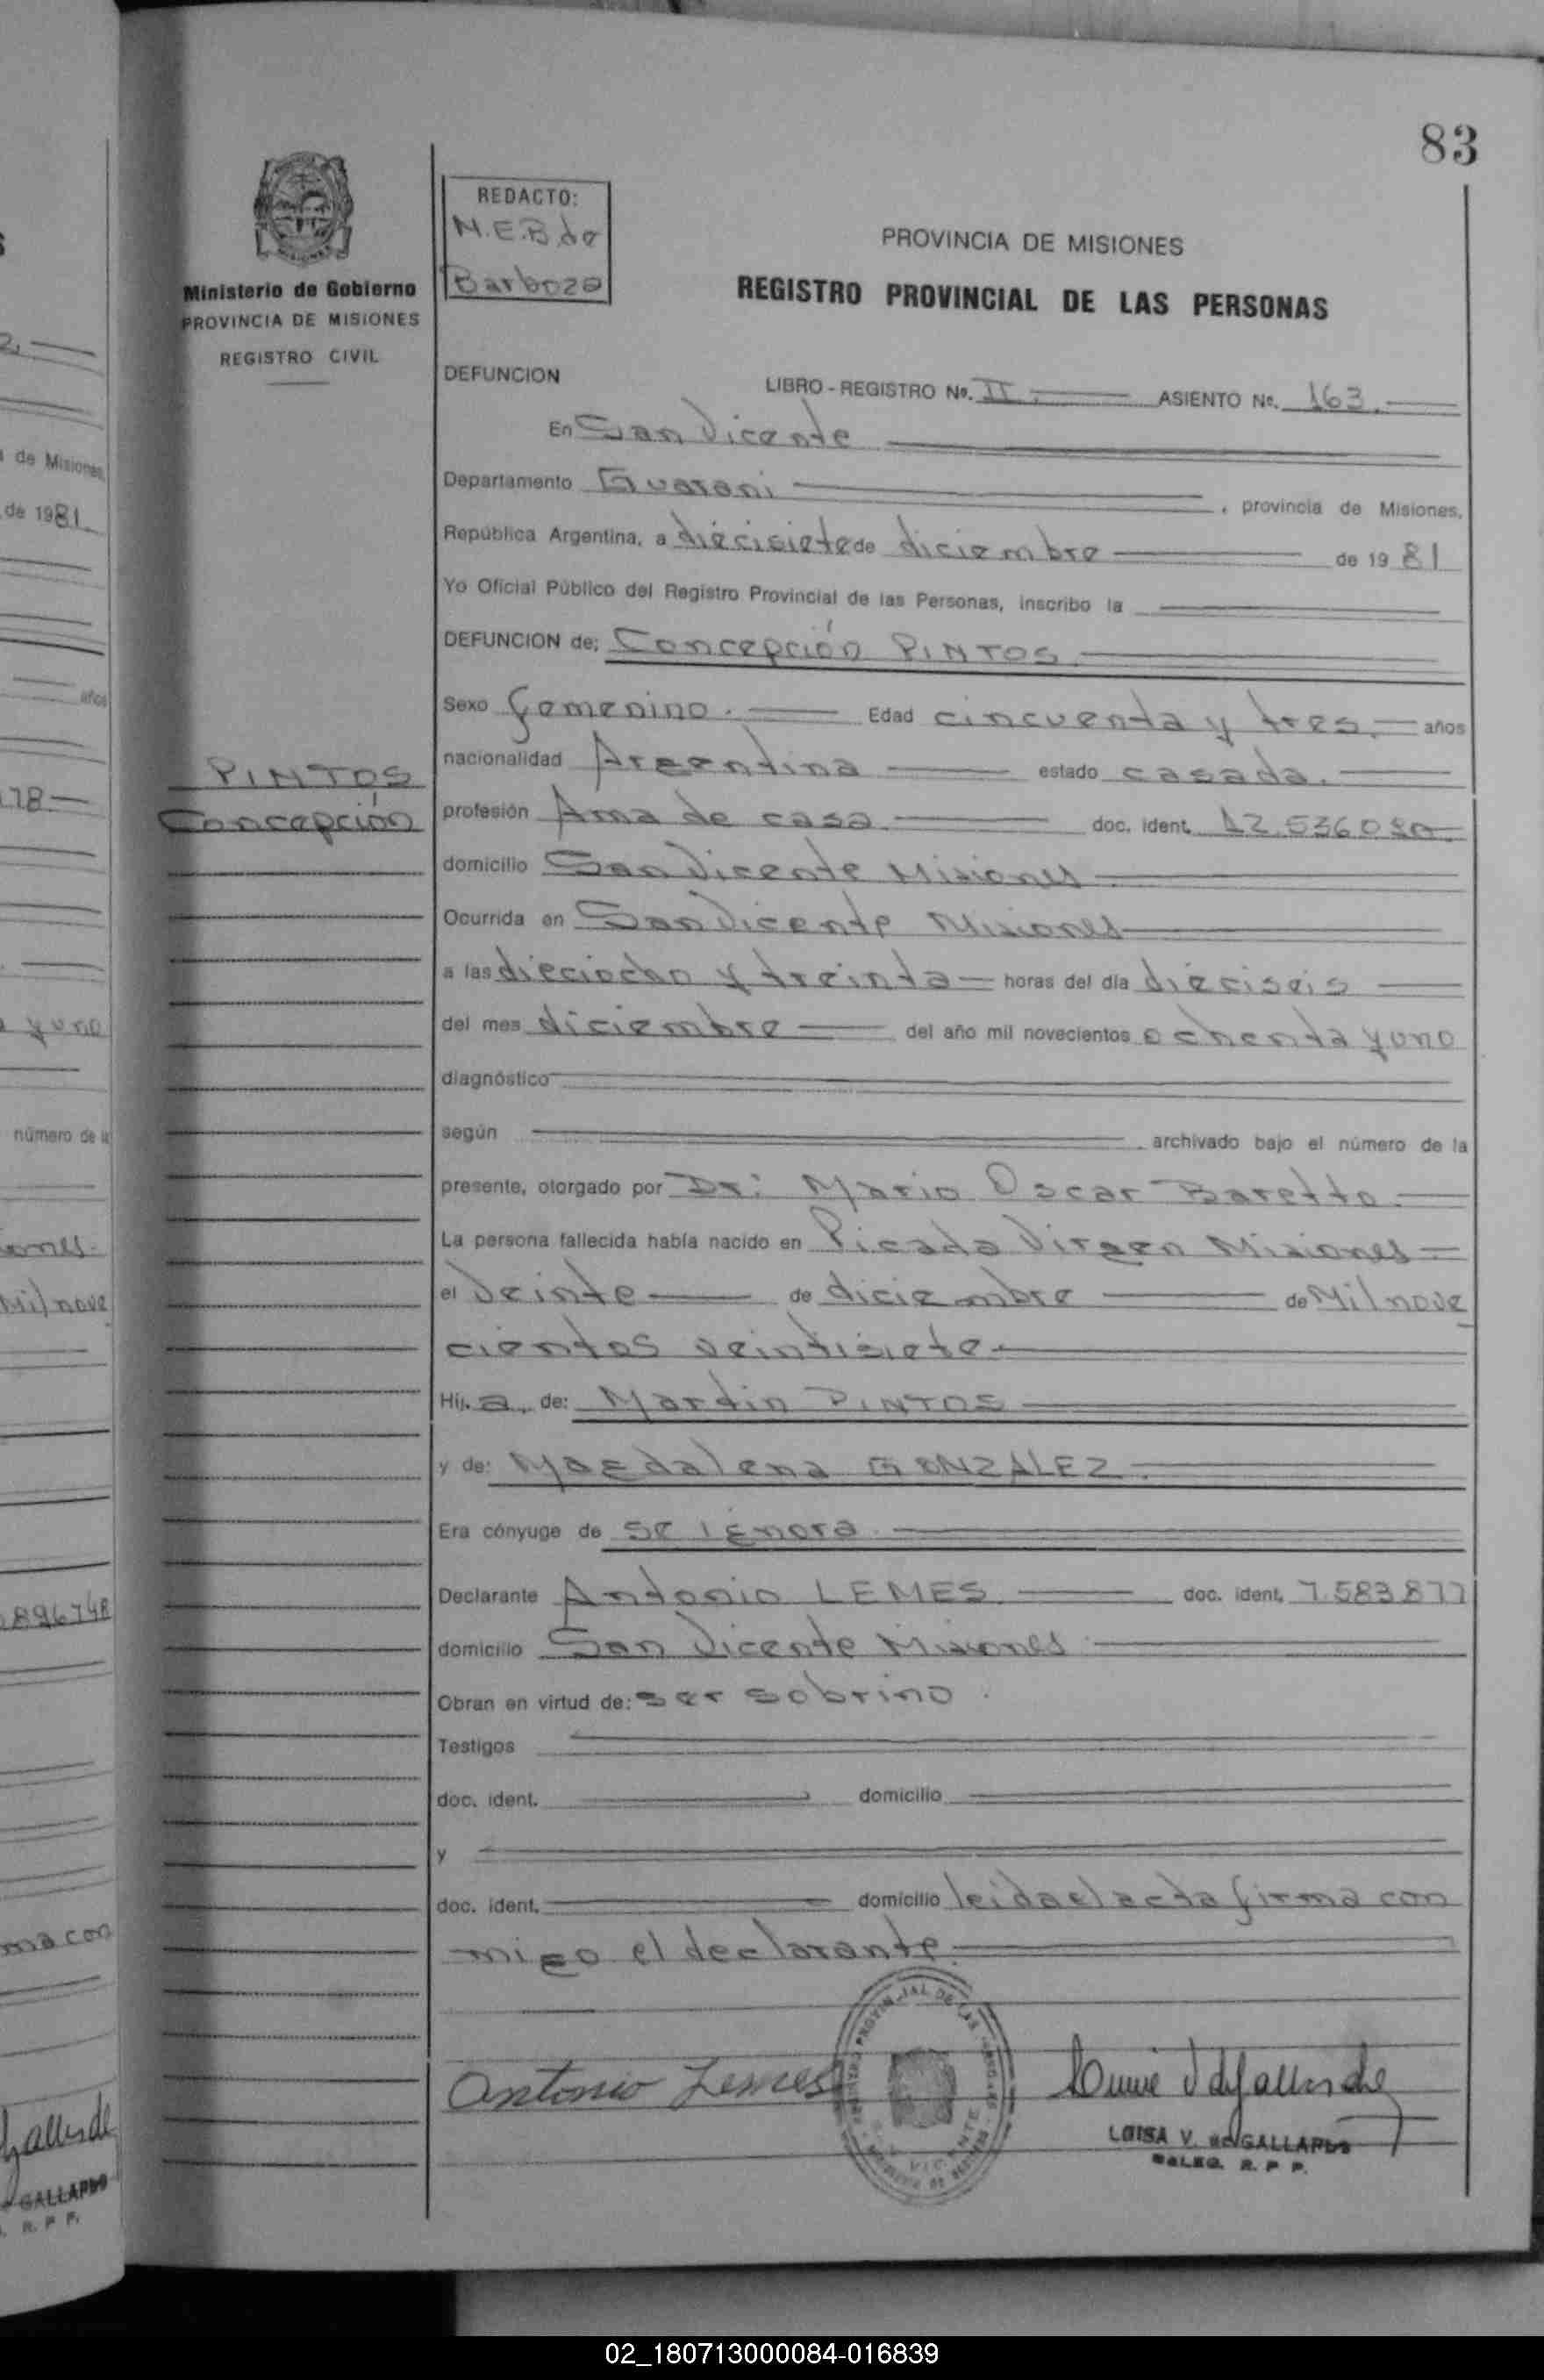 83
REDACTO:
M.E.B de
Barboza
PROVINCIA DE MISIONES
REGISTRO PROVINCIAL DE LAS PERSONAS
Ministerio de Gobierno
PROVINCIA DE MISIONES
REGISTRO CIVIL
DEFUNCION
LIBRO - REGISTRO No. II. ASIENTO No. 163.
En San Vicente
Departamento Guarani, provincia de Misiones,
República Argentina, a diecisiete de diciembre de 1981
Yo Oficial Público del Registro Provincial de las Personas, inscribo la
DEFUNCION de; Concepción PINTOS
Sexo femenino. Edad cincuenta y tres. años
nacionalidad Argentina estado casada.
PINTOS
Concepción
profesión Ama de casa doc. ident. 12.536.080
domicilio San Vicente Misiones
Ocurrida en San Vicente Misiones
a las dieciocho y treinta horas del día dieciseis
del mes diciembre del año mil novecientos ochenta y uno
diagnóstico
según archivado bajo el número de la
presente, otorgado por Dr: Mario Oscar Baretto
La persona fallecida había nacido en Picada Virgen Misiones
el veinte de diciembre de Mil nove
cientos veintisiete
Hij.a. de: Martin PINTOS
y de: Magdalena GONZALEZ
Era cónyuge de se ignora.
Declarante Antonio LEMES doc. ident. 7.583.877
domicilio San Vicente Misiones
Obran en virtud de: ser sobrino.
Testigos
doc. ident. domicilio
y
doc. ident. domicilio leida el acta firma con
migo el declarante
Antonio Lemes
LUISA V. de GALLARDO
R. P. P.
02_180713000084-016839